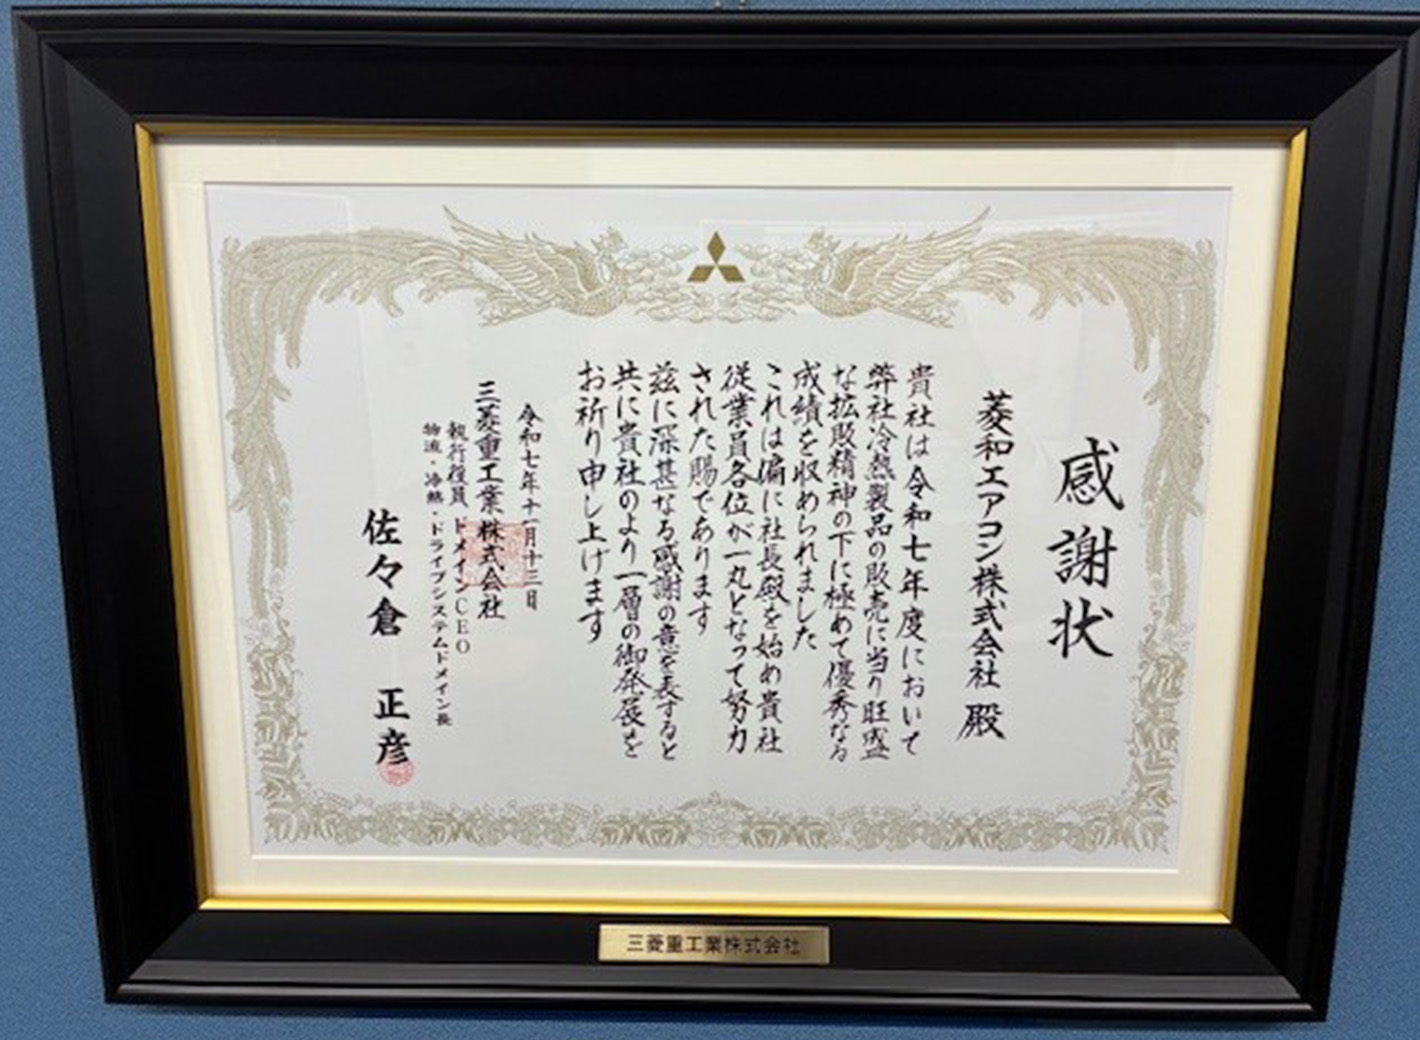 感謝状
菱和エアコン株式会社 殿
貴社は令和七年度において
弊社冷熱製品の販売に当り旺盛
な拡販精神の下に極めて優秀なる
成績を収められました
これは偏に社長殿を始め貴社
従業員各位が一丸となって努力
された賜であります
茲に深甚なる感謝の意を表すると
共に貴社のより一層の御発展を
お祈り申し上げます
令和七年十一月十三日
三菱重工業株式会社
執行役員 ドメインCEO
物流・冷熱・ドライブシステムドメイン長
佐々倉 正彦
三菱重工業株式会社